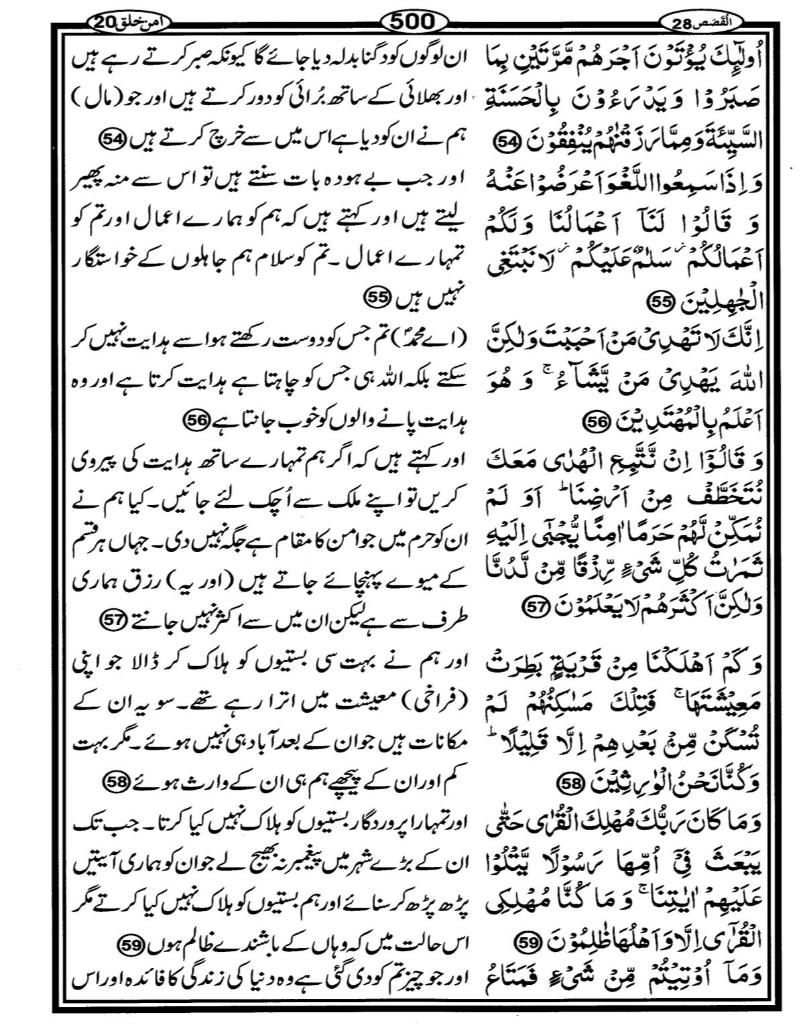 القَصَص 28
500
امن خلق 20
اُولٰٓئِكَ يُؤْتَوْنَ اَجْرَهُمْ مَّرَّتَيْنِ بِمَا
صَبَرُوْا وَيَدْرَءُوْنَ بِالْحَسَنَةِ
السَّيِّئَةَ وَمِمَّا رَزَقْنٰهُمْ يُنْفِقُوْنَ 54
وَاِذَا سَمِعُوا اللَّغْوَ اَعْرَضُوْا عَنْهُ
وَ قَالُوْا لَنَآ اَعْمَالُنَا وَلَكُمْ
اَعْمَالُكُمْ ز سَلٰمٌ عَلَيْكُمْ ز لَا نَبْتَغِى
الْجٰهِلِيْنَ 55
اِنَّكَ لَا تَهْدِىْ مَنْ اَحْبَبْتَ وَلٰكِنَّ
اللّٰهَ يَهْدِىْ مَنْ يَّشَآءُ ۚ وَ هُوَ
اَعْلَمُ بِالْمُهْتَدِيْنَ 56
وَ قَالُوْٓا اِنْ نَّتَّبِعِ الْهُدٰى مَعَكَ
نُتَخَطَّفْ مِنْ اَرْضِنَا ؕ اَوَ لَمْ
نُمَكِّنْ لَّهُمْ حَرَمًا اٰمِنًا يُّجْبٰٓى اِلَيْهِ
ثَمَرٰتُ كُلِّ شَىْءٍ رِّزْقًا مِّنْ لَّدُنَّا
وَلٰكِنَّ اَكْثَرَهُمْ لَا يَعْلَمُوْنَ 57
وَ كَمْ اَهْلَكْنَا مِنْ قَرْيَةٍۭ بَطِرَتْ
مَعِيْشَتَهَا ۚ فَتِلْكَ مَسٰكِنُهُمْ لَمْ
تُسْكَنْ مِّنْۢ بَعْدِهِمْ اِلَّا قَلِيْلًا ؕ
وَكُنَّا نَحْنُ الْوٰرِثِيْنَ 58
وَمَا كَانَ رَبُّكَ مُهْلِكَ الْقُرٰى حَتّٰى
يَبْعَثَ فِىْٓ اُمِّهَا رَسُوْلًا يَّتْلُوْا
عَلَيْهِمْ اٰيٰتِنَا ۚ وَ مَا كُنَّا مُهْلِكِى
الْقُرٰٓى اِلَّا وَاَهْلُهَا ظٰلِمُوْنَ 59
وَمَآ اُوْتِيْتُمْ مِّنْ شَىْءٍ فَمَتَاعُ
ان لوگوں کو دگنا بدلہ دیا جائے گا کیونکہ صبر کرتے رہے ہیں
اور بھلائی کے ساتھ بُرائی کو دور کرتے ہیں اور جو (مال)
ہم نے ان کو دیا ہے اس میں سے خرچ کرتے ہیں 54
اور جب بے ہودہ بات سنتے ہیں تو اس سے منہ پھیر
لیتے ہیں اور کہتے ہیں کہ ہم کو ہمارے اعمال اور تم کو
تمہارے اعمال ۔ تم کو سلام ہم جاہلوں کے خواستگار
نہیں ہیں 55
(اے محمدؐ) تم جس کو دوست رکھتے ہو اسے ہدایت نہیں کر
سکتے بلکہ اللہ ہی جس کو چاہتا ہے ہدایت کرتا ہے اور وہ
ہدایت پانے والوں کو خوب جانتا ہے 56
اور کہتے ہیں کہ اگر ہم تمہارے ساتھ ہدایت کی پیروی
کریں تو اپنے ملک سے اُچک لئے جائیں۔ کیا ہم نے
ان کو حرم میں جو امن کا مقام ہے جگہ نہیں دی۔ جہاں ہر قسم
کے میوے پہنچائے جاتے ہیں (اور یہ) رزق ہماری
طرف سے ہے لیکن ان میں سے اکثر نہیں جانتے 57
اور ہم نے بہت سی بستیوں کو ہلاک کر ڈالا جو اپنی
(فراخی) معیشت میں اترا رہے تھے۔ سو یہ ان کے
مکانات ہیں جو ان کے بعد آباد ہی نہیں ہوئے ۔ مگر بہت
کم اور ان کے پیچھے ہم ہی ان کے وارث ہوئے 58
اور تمہارا پروردگار بستیوں کو ہلاک نہیں کیا کرتا ۔ جب تک
ان کے بڑے شہر میں پیغمبر نہ بھیج لے جو ان کو ہماری آیتیں
پڑھ پڑھ کر سنائے اور ہم بستیوں کو ہلاک نہیں کیا کرتے مگر
اس حالت میں کہ وہاں کے باشندے ظالم ہوں 59
اور جو چیز تم کو دی گئی ہے وہ دنیا کی زندگی کا فائدہ اور اس